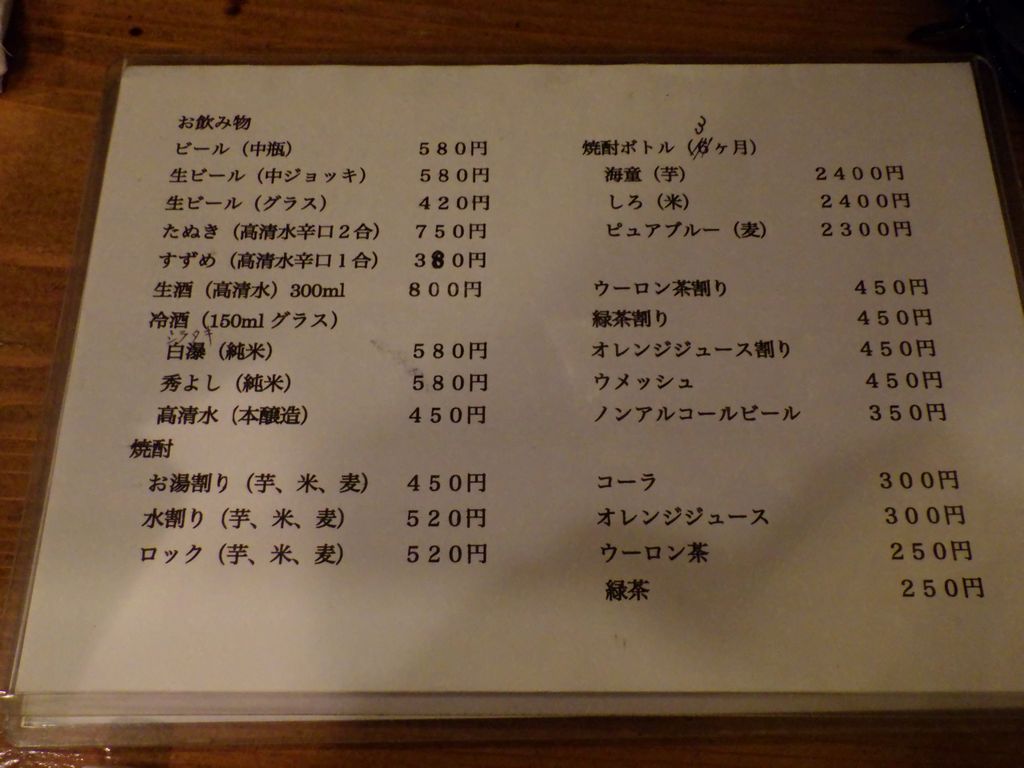 お飲み物
ビール（中瓶） ５８０円
生ビール（中ジョッキ） ５８０円
生ビール（グラス） ４２０円
たぬき（高清水辛口２合） ７５０円
すずめ（高清水辛口１合） ３８０円
生酒（高清水）300ml ８００円
冷酒（150ml グラス）
シラタキ
白瀑（純米） ５８０円
秀よし（純米） ５８０円
高清水（本醸造） ４５０円
焼酎
お湯割り（芋、米、麦） ４５０円
水割り（芋、米、麦） ５２０円
ロック（芋、米、麦） ５２０円
3
焼酎ボトル（ヶ月）
海童（芋） ２４００円
しろ（米） ２４００円
ピュアブルー（麦） ２３００円
ウーロン茶割り ４５０円
緑茶割り ４５０円
オレンジジュース割り ４５０円
ウメッシュ ４５０円
ノンアルコールビール ３５０円
コーラ ３００円
オレンジジュース ３００円
ウーロン茶 ２５０円
緑茶 ２５０円